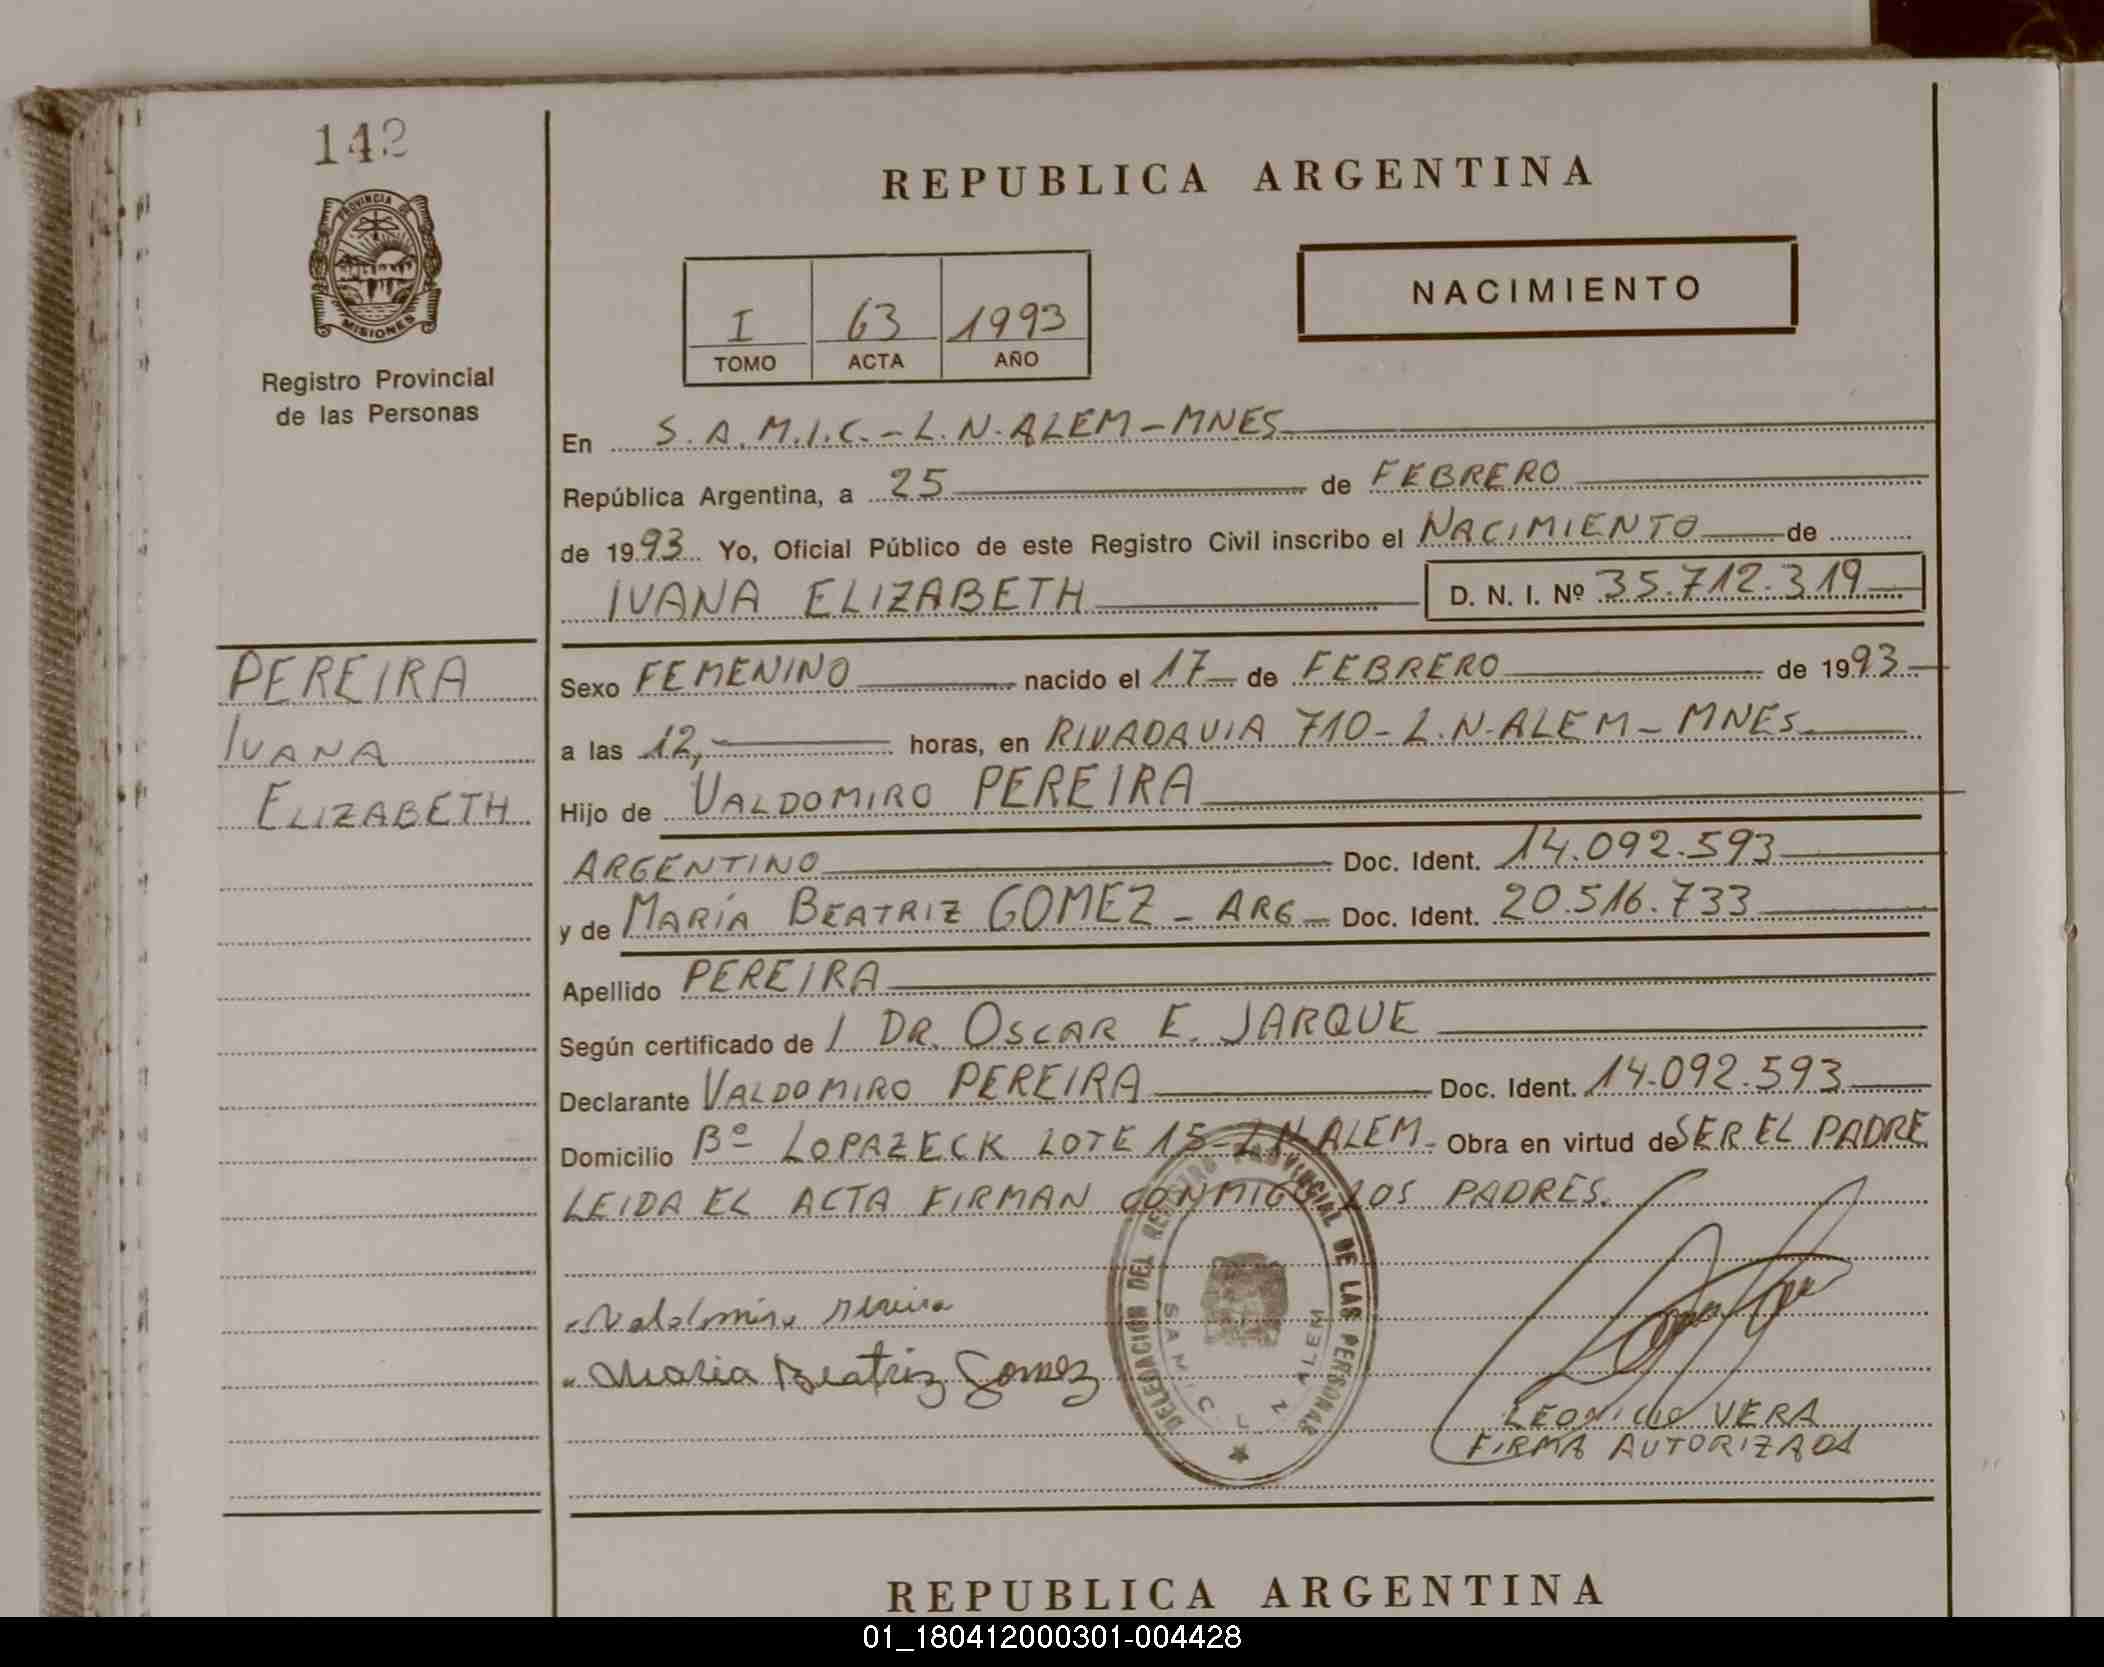 142
PROVINCIA DE
MISIONES
Registro Provincial
de las Personas
REPUBLICA ARGENTINA
I 63 1993
TOMO ACTA AÑO
NACIMIENTO
En S.A.M.I.C. - L.N. ALEM - MNES
República Argentina, a 25 de FEBRERO
de 1993 Yo, Oficial Público de este Registro Civil inscribo el NACIMIENTO de
IVANA ELIZABETH D. N. I. Nº 35.712.319
PEREIRA
IVANA
ELIZABETH
Sexo FEMENINO nacido el 17 de FEBRERO de 1993
a las 12,- horas, en RIVADAVIA 710 - L.N. ALEM - MNES
Hijo de VALDOMIRO PEREIRA
ARGENTINO Doc. Ident. 14.092.593
y de MARÍA BEATRIZ GOMEZ - ARG - Doc. Ident. 20.516.733
Apellido PEREIRA
Según certificado de / DR. OSCAR E. JARQUE
Declarante VALDOMIRO PEREIRA Doc. Ident. 14.092.593
Domicilio Bº LOPAZECK LOTE 15 - L.N. ALEM - Obra en virtud de SER EL PADRE
LEIDA EL ACTA FIRMAN CONMIGO LOS PADRES.
Valdomiro Pereira
Maria Beatriz Gomez
DELEGACION DEL REGISTRO PROVINCIAL DE LAS PERSONAS
S A M I C . L . N . ALEM
LEONICIO VERA
FIRMA AUTORIZADA
REPUBLICA ARGENTINA
01_180412000301-004428